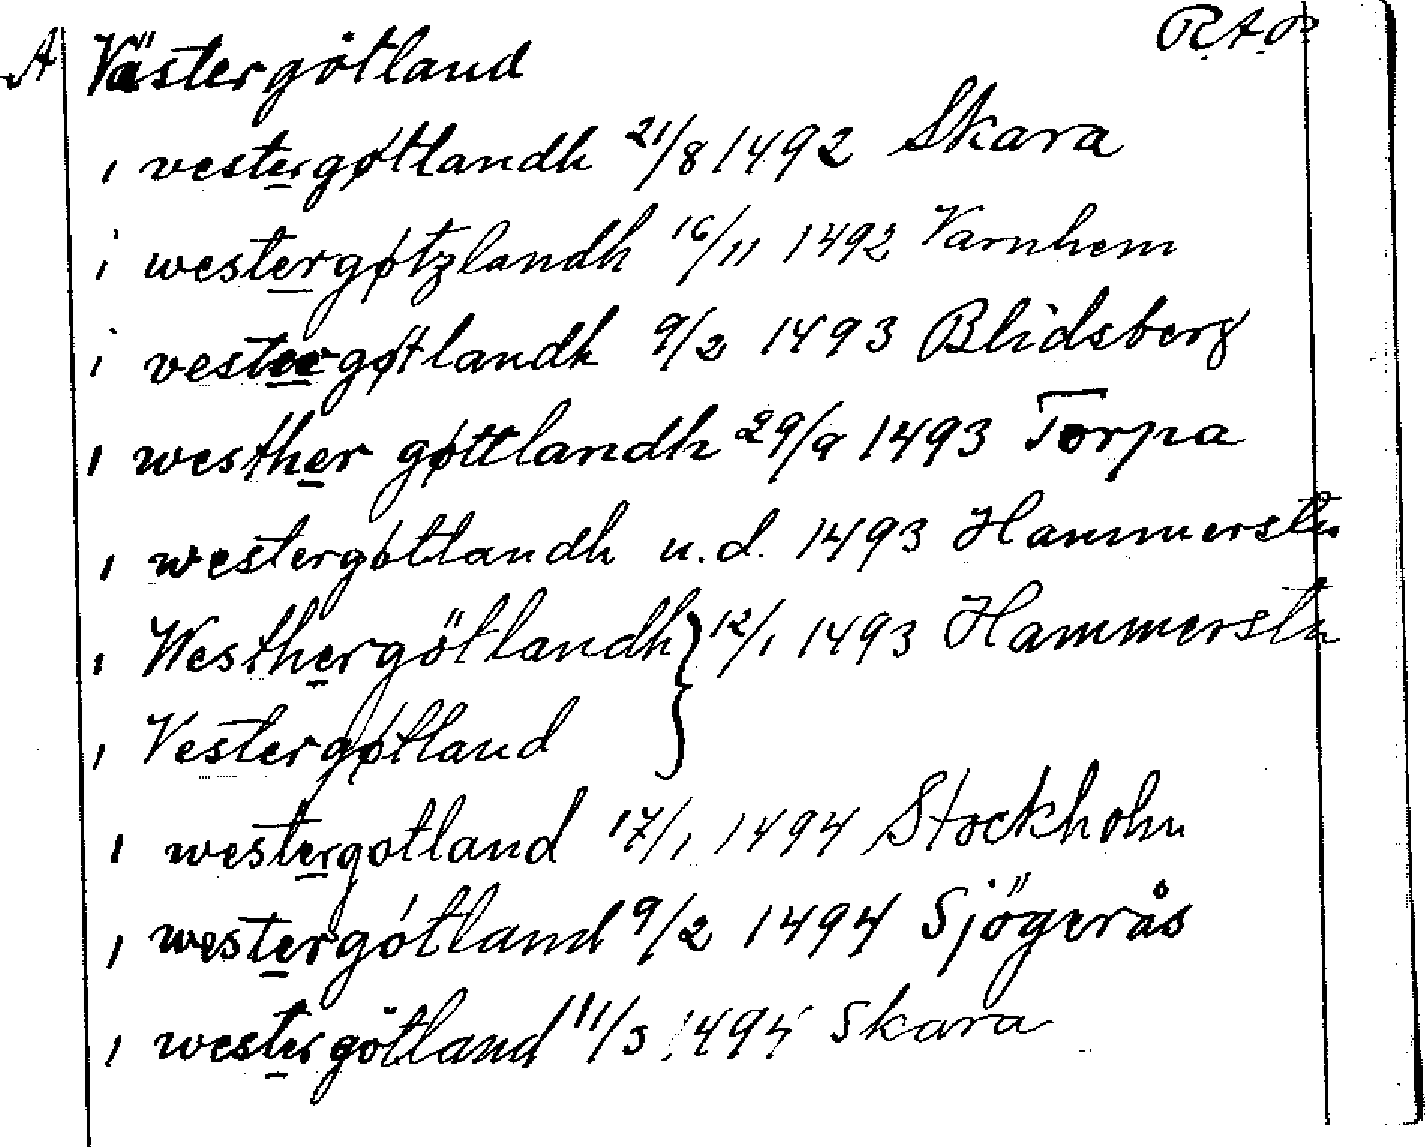 A Västergötland R.A.P.
i vestergøtlandh 21/8 1492 Skara
i westergøtzlandh 16/11 1492 Varnhem
i vestergøtlandh 9/2 1493 Blidsberg
i westher gøttlandh 29/9 1493 Torpa
i westergøtlandh u.d. 1493 Hammersta
i Westhergötlandh } 12/1 1493 Hammersta
i Vestergøtland
i westergotland 17/1 1494 Stockholm
i westergótland 9/2 1494 Sjögerås
i westergötland 11/3 1494 Skara